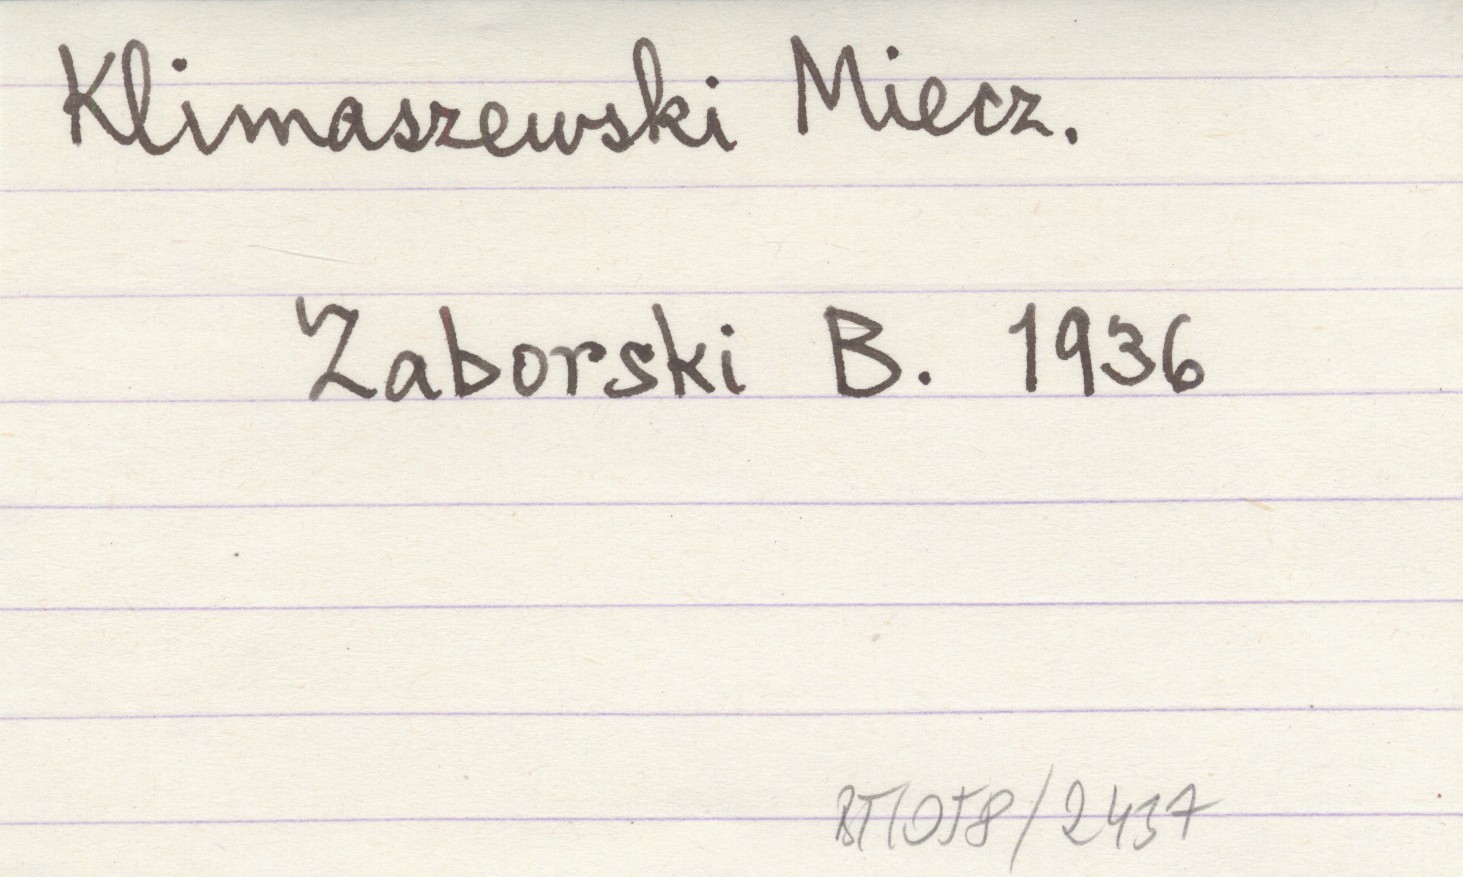 Klimaszewski Miecz.
Zaborski B. 1936
BT/058/2437